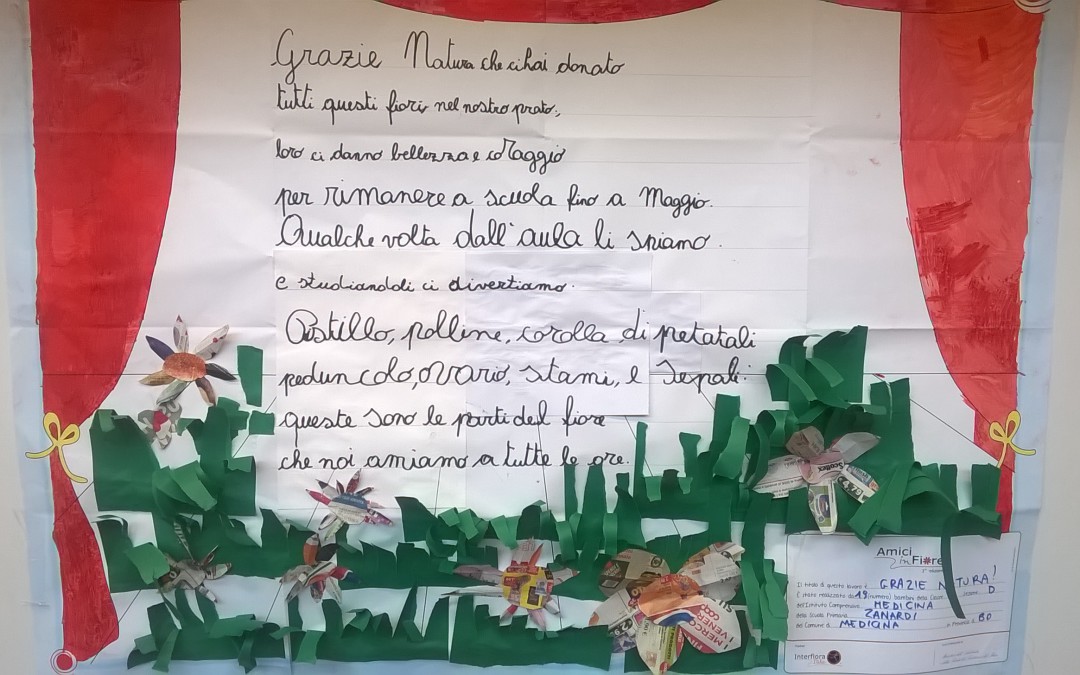 Grazie Natura che ci hai donato
tutti questi fiori nel nostro prato,
loro ci danno bellezza e coraggio
per rimanere a scuola fino a Maggio.
Qualche volta dall'aula li spiamo.
e studiandoli ci divertiamo.
Pistillo, polline, corolla di petatali
peduncolo, ovario, stami, e Sepali:
queste sono le parti del fiore
che noi amiamo a tutte le ore.
Scottex
Amici
in Fi#re
Il titolo di questo lavoro è GRAZIE NATURA!
È stato realizzato da 19 (numero) bambini della Classe sezione D
dell'Istituto Comprensivo MEDICINA
della Scuola Primaria ZANARDI
del Comune di MEDICINA in Provincia di BO
Interflora